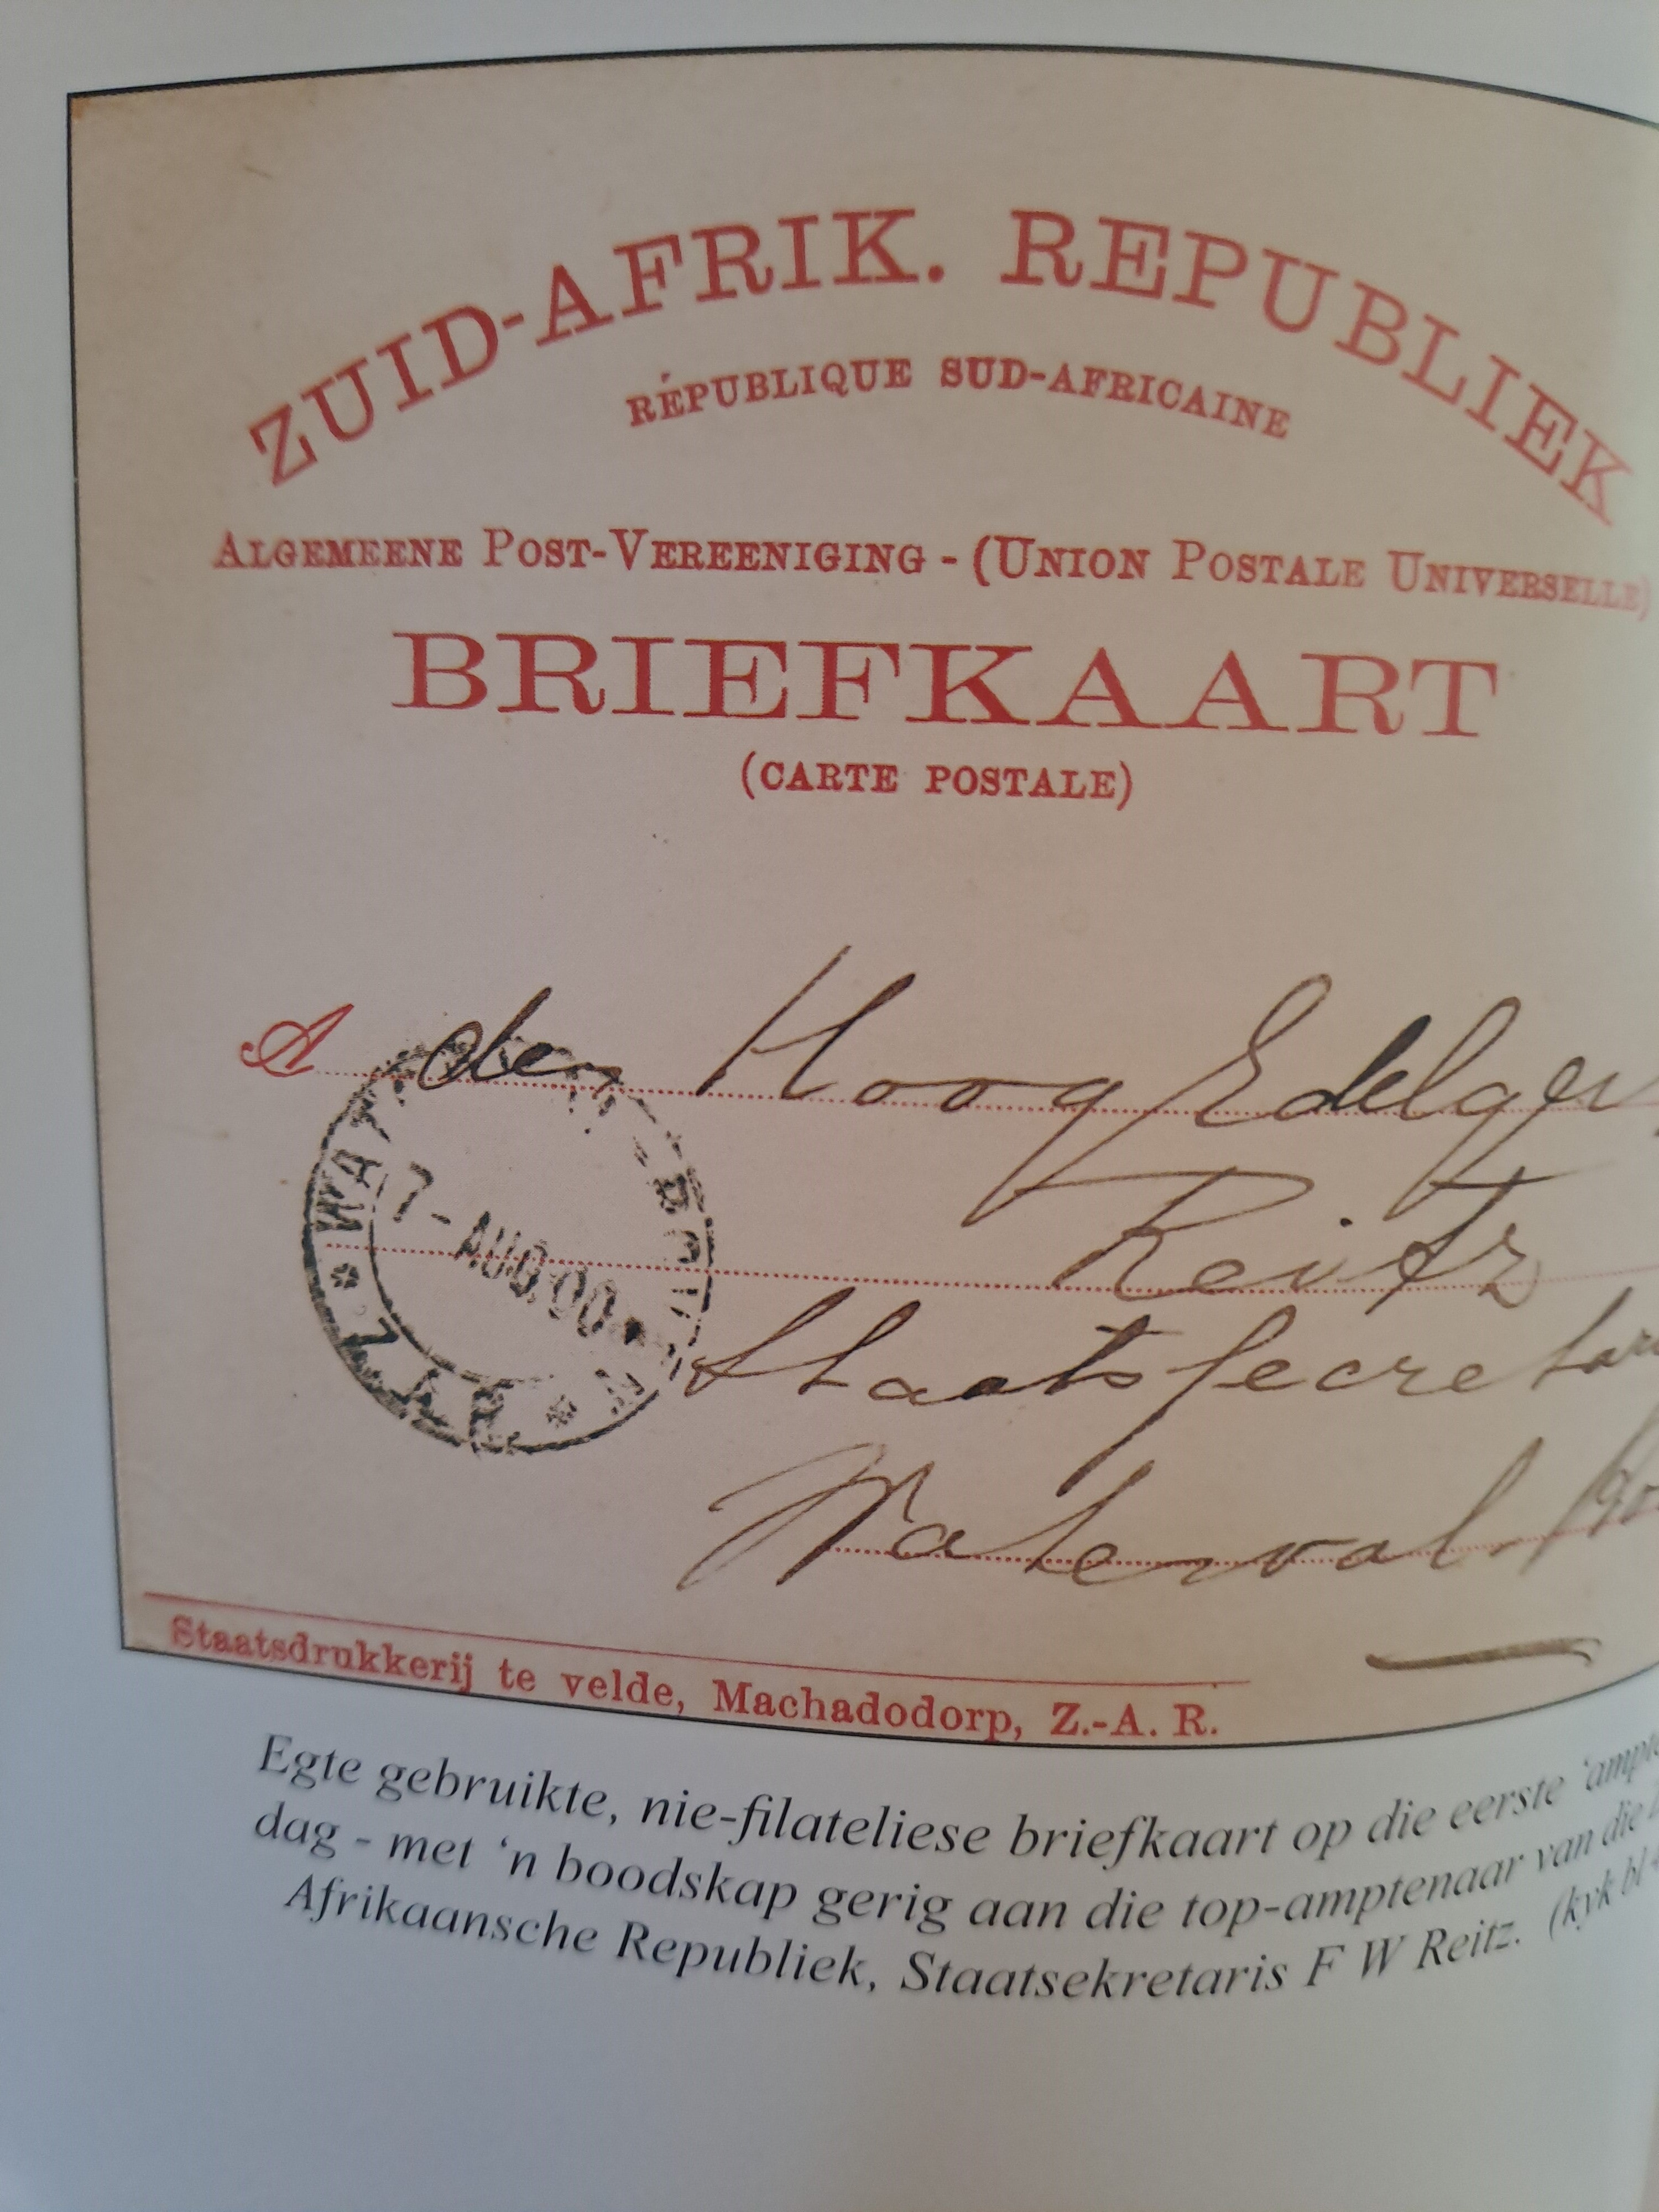 ZUID-AFRIK. REPUBLIEK
RÉPUBLIQUE SUD-AFRICAINE
ALGEMEENE POST-VEREENIGING - (UNION POSTALE UNIVERSELLE)
BRIEFKAART
(CARTE POSTALE)
A den Hoog Edelge
Reitz
7-AUG.00
Staats Secretar
Waterval
Z.A.R.
Staatsdrukkerij te velde, Machadodorp, Z.-A. R.
Egte gebruikte, nie-filateliese briefkaart op die eerste
dag - met 'n boodskap gerig aan die top-amptenaar van die
Afrikaansche Republiek, Staatsekretaris F W Reitz. (kyk bl